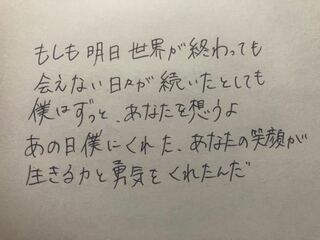 もしも明日世界が終わっても
会えない日々が続いたとしても
僕はずっと、あなたを想うよ
あの日僕にくれた、あなたの笑顔が
生きる力と勇気をくれたんだ